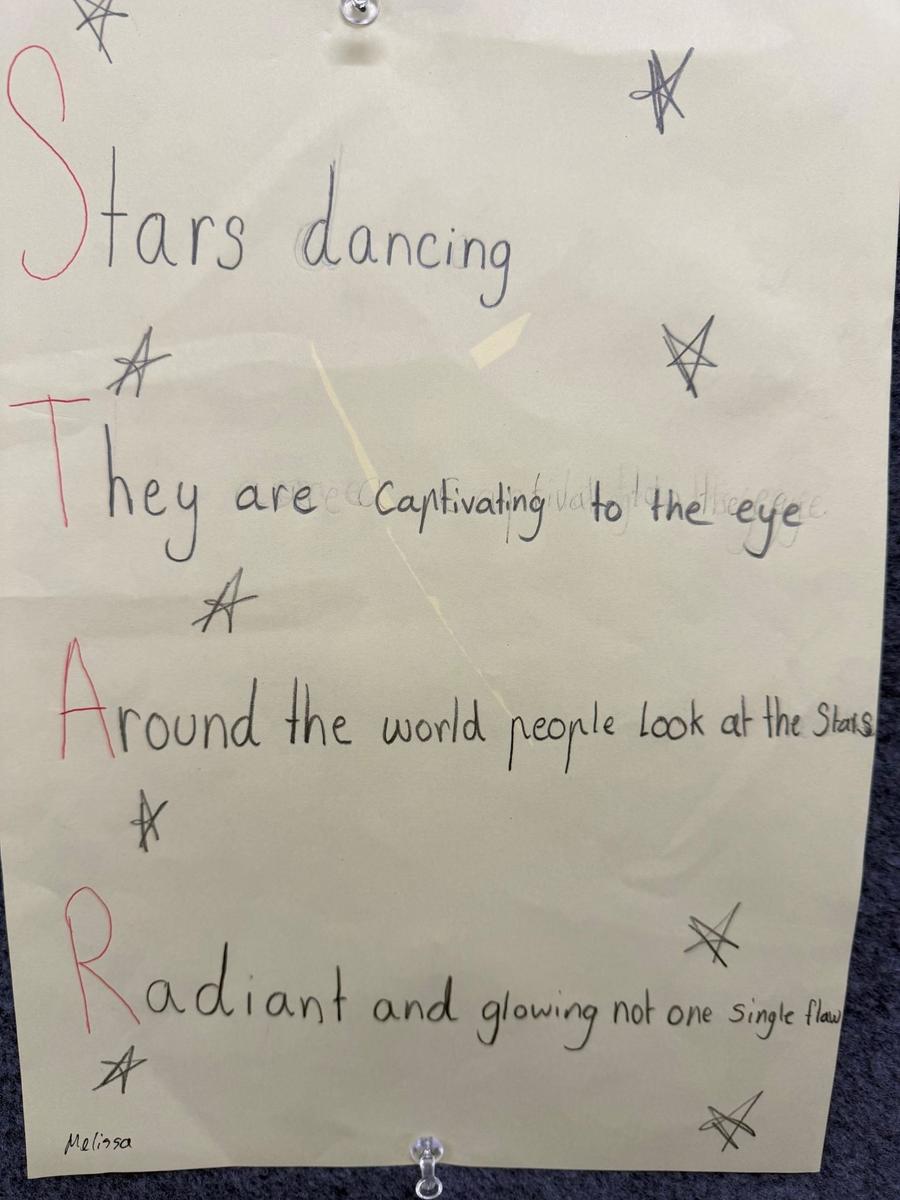 Stars dancing
They are captivating to the eye
Around the world people look at the Stars
Radiant and glowing not one single flaw
Melissa